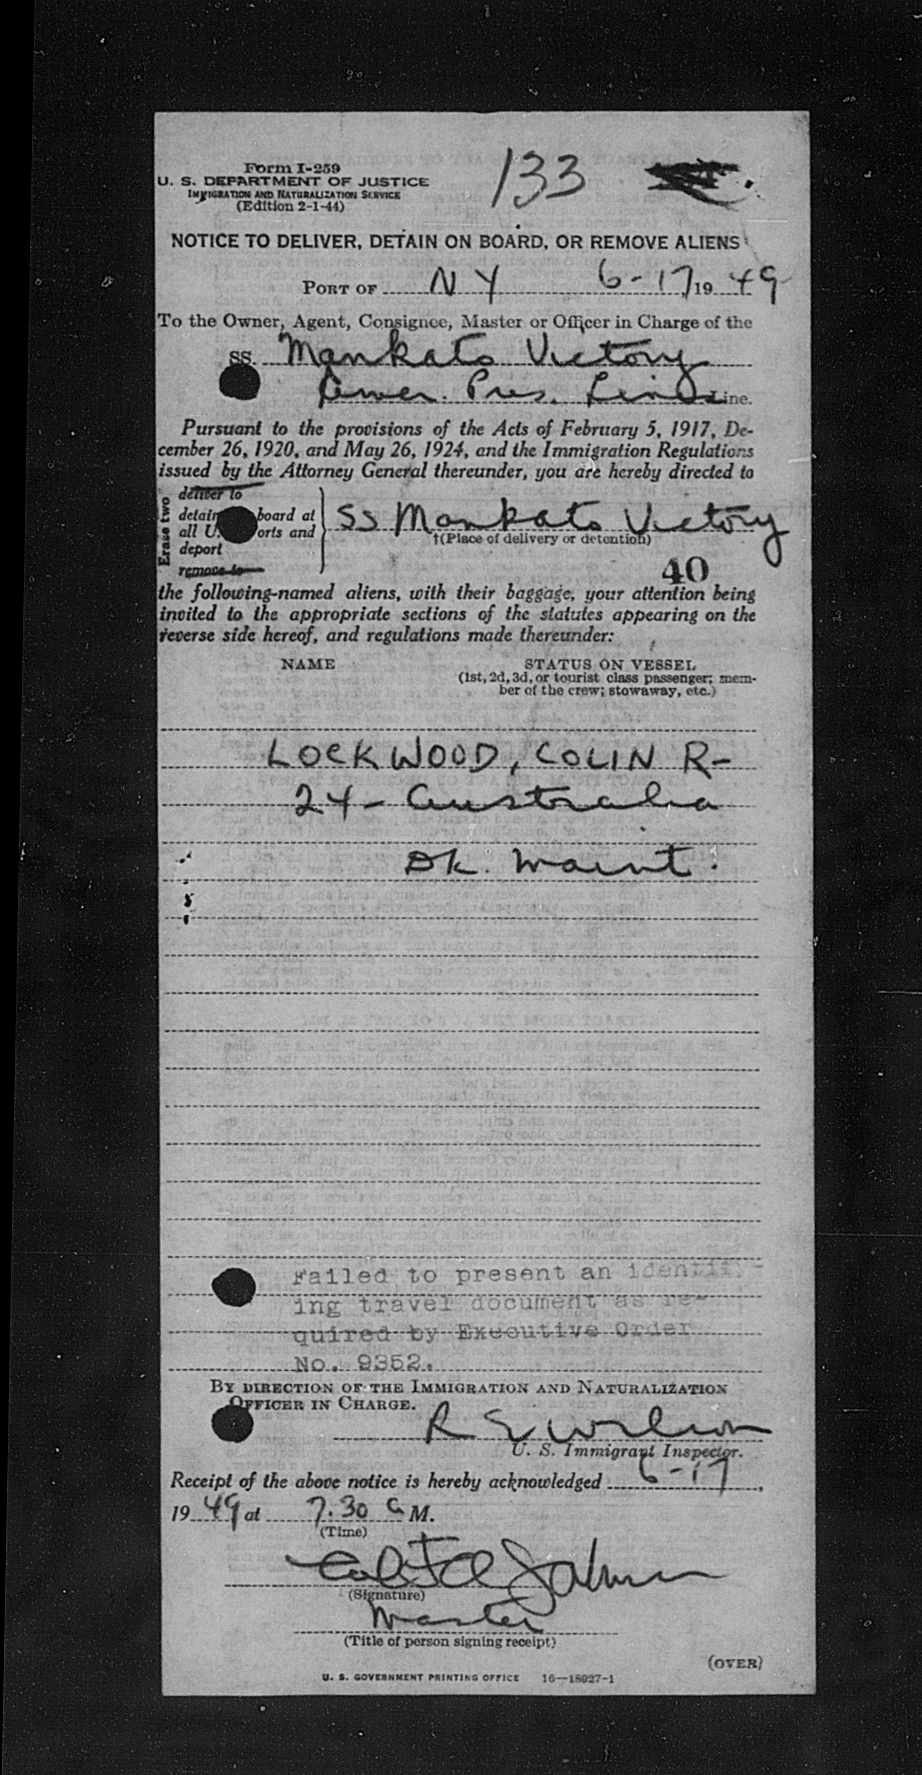 Form I-259
133
U. S. DEPARTMENT OF JUSTICE
IMMIGRATION AND NATURALIZATION SERVICE
(Edition 2-1-44)
NOTICE TO DELIVER, DETAIN ON BOARD, OR REMOVE ALIENS
PORT OF NY 6-17 1949
To the Owner, Agent, Consignee, Master or Officer in Charge of the
SS. Mankato Victory
Amer. Pres. Lines Line.
Pursuant to the provisions of the Acts of February 5, 1917, De-
cember 26, 1920, and May 26, 1924, and the Immigration Regulations
issued by the Attorney General thereunder, you are hereby directed to
Erase two
deliver to
detain board at
all U. orts and
deport
remove to
SS Mankato Victory
†(Place of delivery or detention)
40
the following-named aliens, with their baggage, your attention being
invited to the appropriate sections of the statutes appearing on the
reverse side hereof, and regulations made thereunder:
NAME STATUS ON VESSEL
(1st, 2d, 3d, or tourist class passenger; mem-
ber of the crew; stowaway, etc.)
LOCKWOOD, COLIN R-
24 - Australia
Dk. Maint.
Failed to present an identify-
ing travel document as re-
quired by Executive Order
No. 9352.
BY DIRECTION OF THE IMMIGRATION AND NATURALIZATION
OFFICER IN CHARGE.
R E Wilson
U. S. Immigrant Inspector.
Receipt of the above notice is hereby acknowledged 6-17,
1949 at 7.30 A M.
(Time)
(Signature)
Master
(Title of person signing receipt)
(OVER)
U. S. GOVERNMENT PRINTING OFFICE 16—18927-1